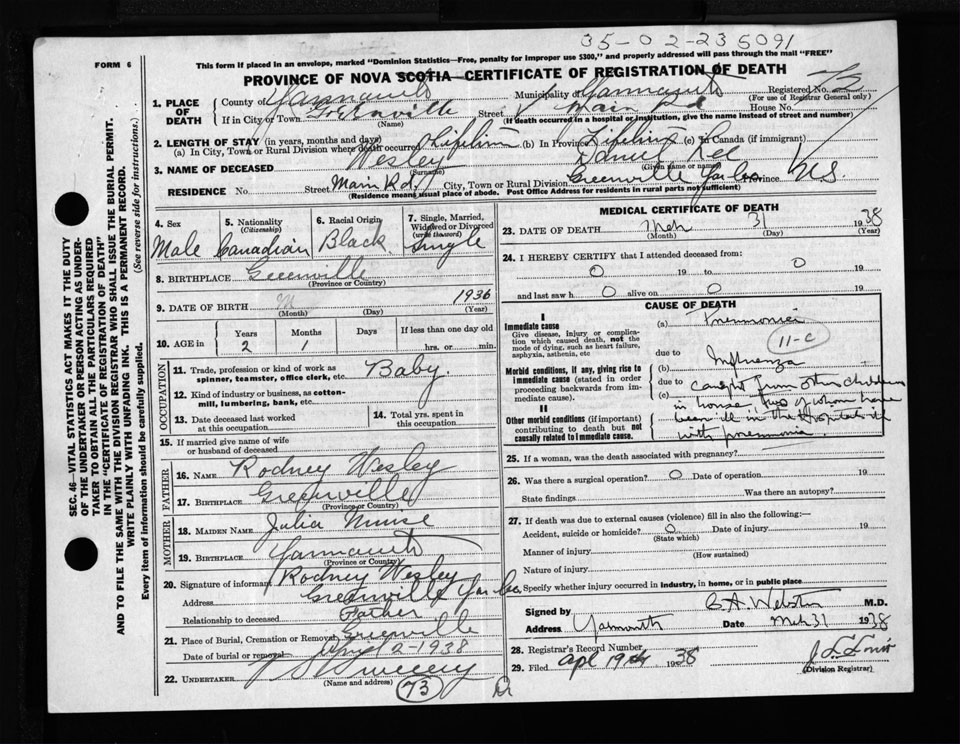 35-02-235091
FORM 6
This form if placed in an envelope, marked "Dominion Statistics—Free, penalty for improper use $300," and properly addressed will pass through the mail "FREE"
PROVINCE OF NOVA SCOTIA—CERTIFICATE OF REGISTRATION OF DEATH
1. PLACE OF DEATH County of Yarmouth Municipality of Yarmouth Registered No. 73
(For use of Registrar General only)
If in City or Town Greenville Street Main Rd House No.
(Name) (If death occurred in a hospital or institution, give the name instead of street and number)
2. LENGTH OF STAY (in years, months and days)
(a) In City, Town or Rural Division where death occurred Lifetime (b) In Province Lifetime (c) In Canada (if immigrant)
3. NAME OF DECEASED Wesley Daniel
(Surname) (Given name or names)
RESIDENCE No. Street Main Rd. City, Town or Rural Division Greenville Yar Co Province N.S.
(Residence means usual place of abode. Post Office Address for residents in rural parts not sufficient)
4. Sex 5. Nationality 6. Racial Origin 7. Single, Married, Widowed or Divorced
(Citizenship) (write the word)
Male Canadian Black Single
8. BIRTHPLACE Greenville
(Province or Country)
9. DATE OF BIRTH M 1936
(Month) (Day) (Year)
10. AGE in Years Months Days If less than one day old
2 1 hrs. or min.
OCCUPATION
11. Trade, profession or kind of work as spinner, teamster, office clerk, etc. Baby.
12. Kind of industry or business, as cotton-mill, lumbering, bank, etc.
13. Date deceased last worked at this occupation
14. Total yrs. spent in this occupation
15. If married give name of wife or husband of deceased
FATHER
16. NAME Rodney Wesley
17. BIRTHPLACE Greenville
(Province or Country)
MOTHER
18. MAIDEN NAME Julia Muise
19. BIRTHPLACE Yarmouth
(Province or Country)
20. Signature of informant Rodney Wesley
Address Greenville Yar Co.
Relationship to deceased Father
21. Place of Burial, Cremation or Removal Greenville
Date of burial or removal April 2-1938
22. UNDERTAKER Sweeny
(Name and address)
73
MEDICAL CERTIFICATE OF DEATH
23. DATE OF DEATH Mch 31 1938
(Month) (Day) (Year)
24. I HEREBY CERTIFY that I attended deceased from:
0 19 to 0 19
and last saw h 0 alive on 0 19
CAUSE OF DEATH
I
Immediate cause
Give disease, injury or complication which caused death, not the mode of dying, such as heart failure, asphyxia, asthenia, etc
(a) Pneumonia
11-c
due to
Morbid conditions, if any, giving rise to immediate cause (stated in order proceeding backwards from immediate cause).
(b) Influenza
due to
(c) caught from other children
in house—two of whom have
been ill in the Hospital
with pneumonia.
II
Other morbid conditions (if important) contributing to death but not causally related to immediate cause.
25. If a woman, was the death associated with pregnancy?
26. Was there a surgical operation? 0 Date of operation 19
State findings Was there an autopsy?
27. If death was due to external causes (violence) fill in also the following:—
Accident, suicide or homicide? 0 Date of injury 19
(State which)
Manner of injury
(How sustained)
Nature of injury
Specify whether injury occurred in industry, in home, or in public place
Signed by C. A. Webster M.D.
Address Yarmouth Date Mch 31 1938
28. Registrar's Record Number
29. Filed Apl 19th 1938
(Division Registrar)
SEC. 46—VITAL STATISTICS ACT MAKES IT THE DUTY
OF THE UNDERTAKER OR PERSON ACTING AS UNDERTAKER TO OBTAIN ALL THE PARTICULARS REQUIRED
IN THE "CERTIFICATE OF REGISTRATION OF DEATH"
AND TO FILE THE SAME WITH THE DIVISION REGISTRAR WHO SHALL ISSUE THE BURIAL PERMIT.
WRITE PLAINLY WITH UNFADING INK. THIS IS A PERMANENT RECORD.
Every item of information should be carefully supplied. (See reverse side for instructions.)